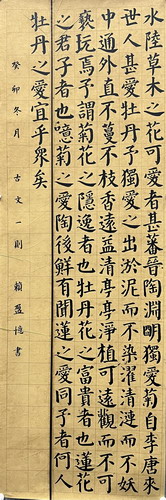 水陸草木之花可愛者甚蕃晉陶淵明獨愛菊自李唐來
世人甚愛牡丹予獨愛之出於泥而不染濯清漣而不妖
中通外直不蔓不枝香遠益清亭亭淨植可遠觀而不可
褻玩焉予謂菊花之隱逸者也牡丹花之富貴者也蓮花
之君子者也噫菊之愛陶後鮮有聞蓮之愛同予者何人
牡丹之愛宜乎眾矣
癸卯冬月 古文一則 賴盈憶書